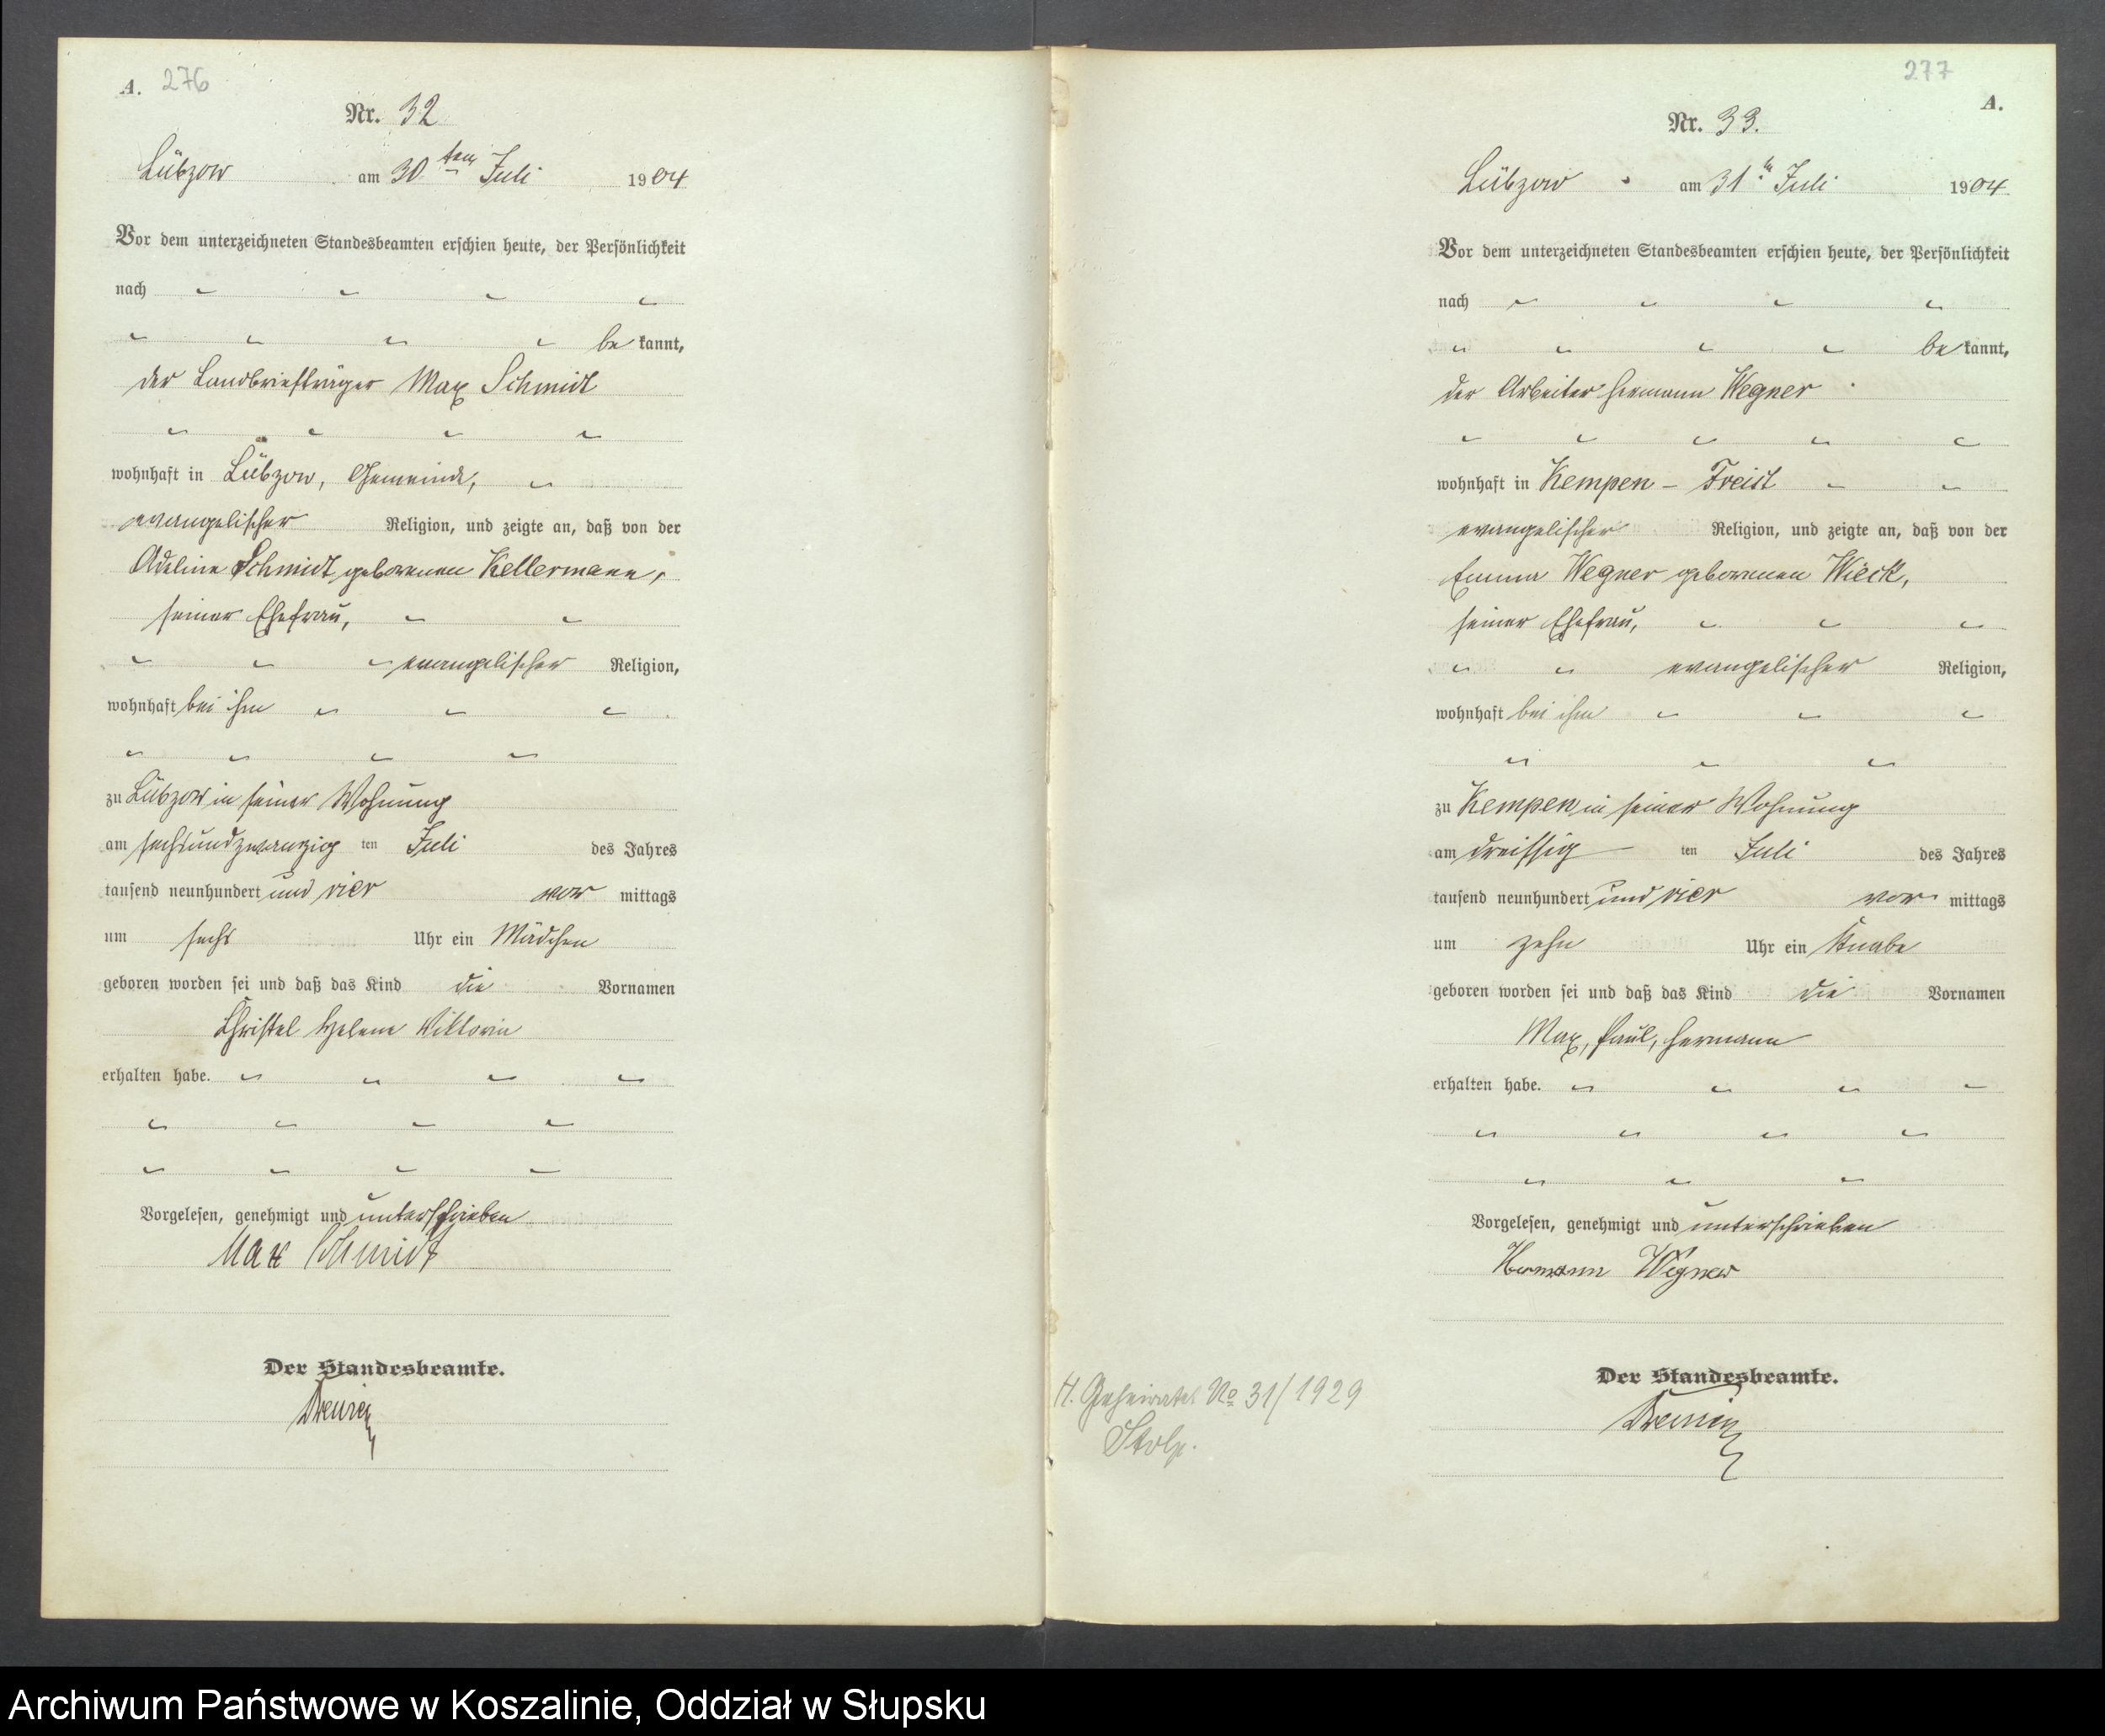 A. 276
Nr. 32
Lübzow am 30ten Juli 1904
Vor dem unterzeichneten Standesbeamten erschien heute, der Persönlichkeit
nach
be kannt,
der Landbriefträger Max Schmidt
wohnhaft in Lübzow, Gemeinde,
evangelischer Religion, und zeigte an, daß von der
Adeline Schmidt geborenen Kellermann,
seiner Ehefrau,
evangelischer Religion,
wohnhaft bei ihm
zu Lübzow in seiner Wohnung
am sechsundzwanzig ten Juli des Jahres
tausend neunhundert und vier vor mittags
um sechs Uhr ein Mädchen
geboren worden sei und daß das Kind die Vornamen
Christel Helene Viktoria
erhalten habe.
Vorgelesen, genehmigt und unterschrieben
Max Schmidt
Der Standesbeamte.
277
A.
Nr. 33.
Lübzow am 31te Juli 1904
Vor dem unterzeichneten Standesbeamten erschien heute, der Persönlichkeit
nach
be kannt,
der Arbeiter Hermann Wegner
wohnhaft in Kempen - Freist
evangelischer Religion, und zeigte an, daß von der
Emma Wegner geborenen Wieck,
seiner Ehefrau,
evangelischer Religion,
wohnhaft bei ihm
zu Kempen in seiner Wohnung
am dreissig ten Juli des Jahres
tausend neunhundert und vier vor mittags
um zehn Uhr ein Knabe
geboren worden sei und daß das Kind die Vornamen
Max, Paul, Hermann
erhalten habe.
Vorgelesen, genehmigt und unterschrieben
Hermann Wegner
Der Standesbeamte.
H. Geheiratet No 31/1929
Stolp.
Archiwum Państwowe w Koszalinie, Oddział w Słupsku